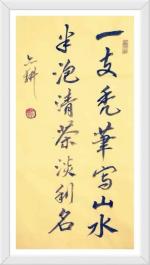 一支秃筆写山水
半泡清茶淡利名
六耕